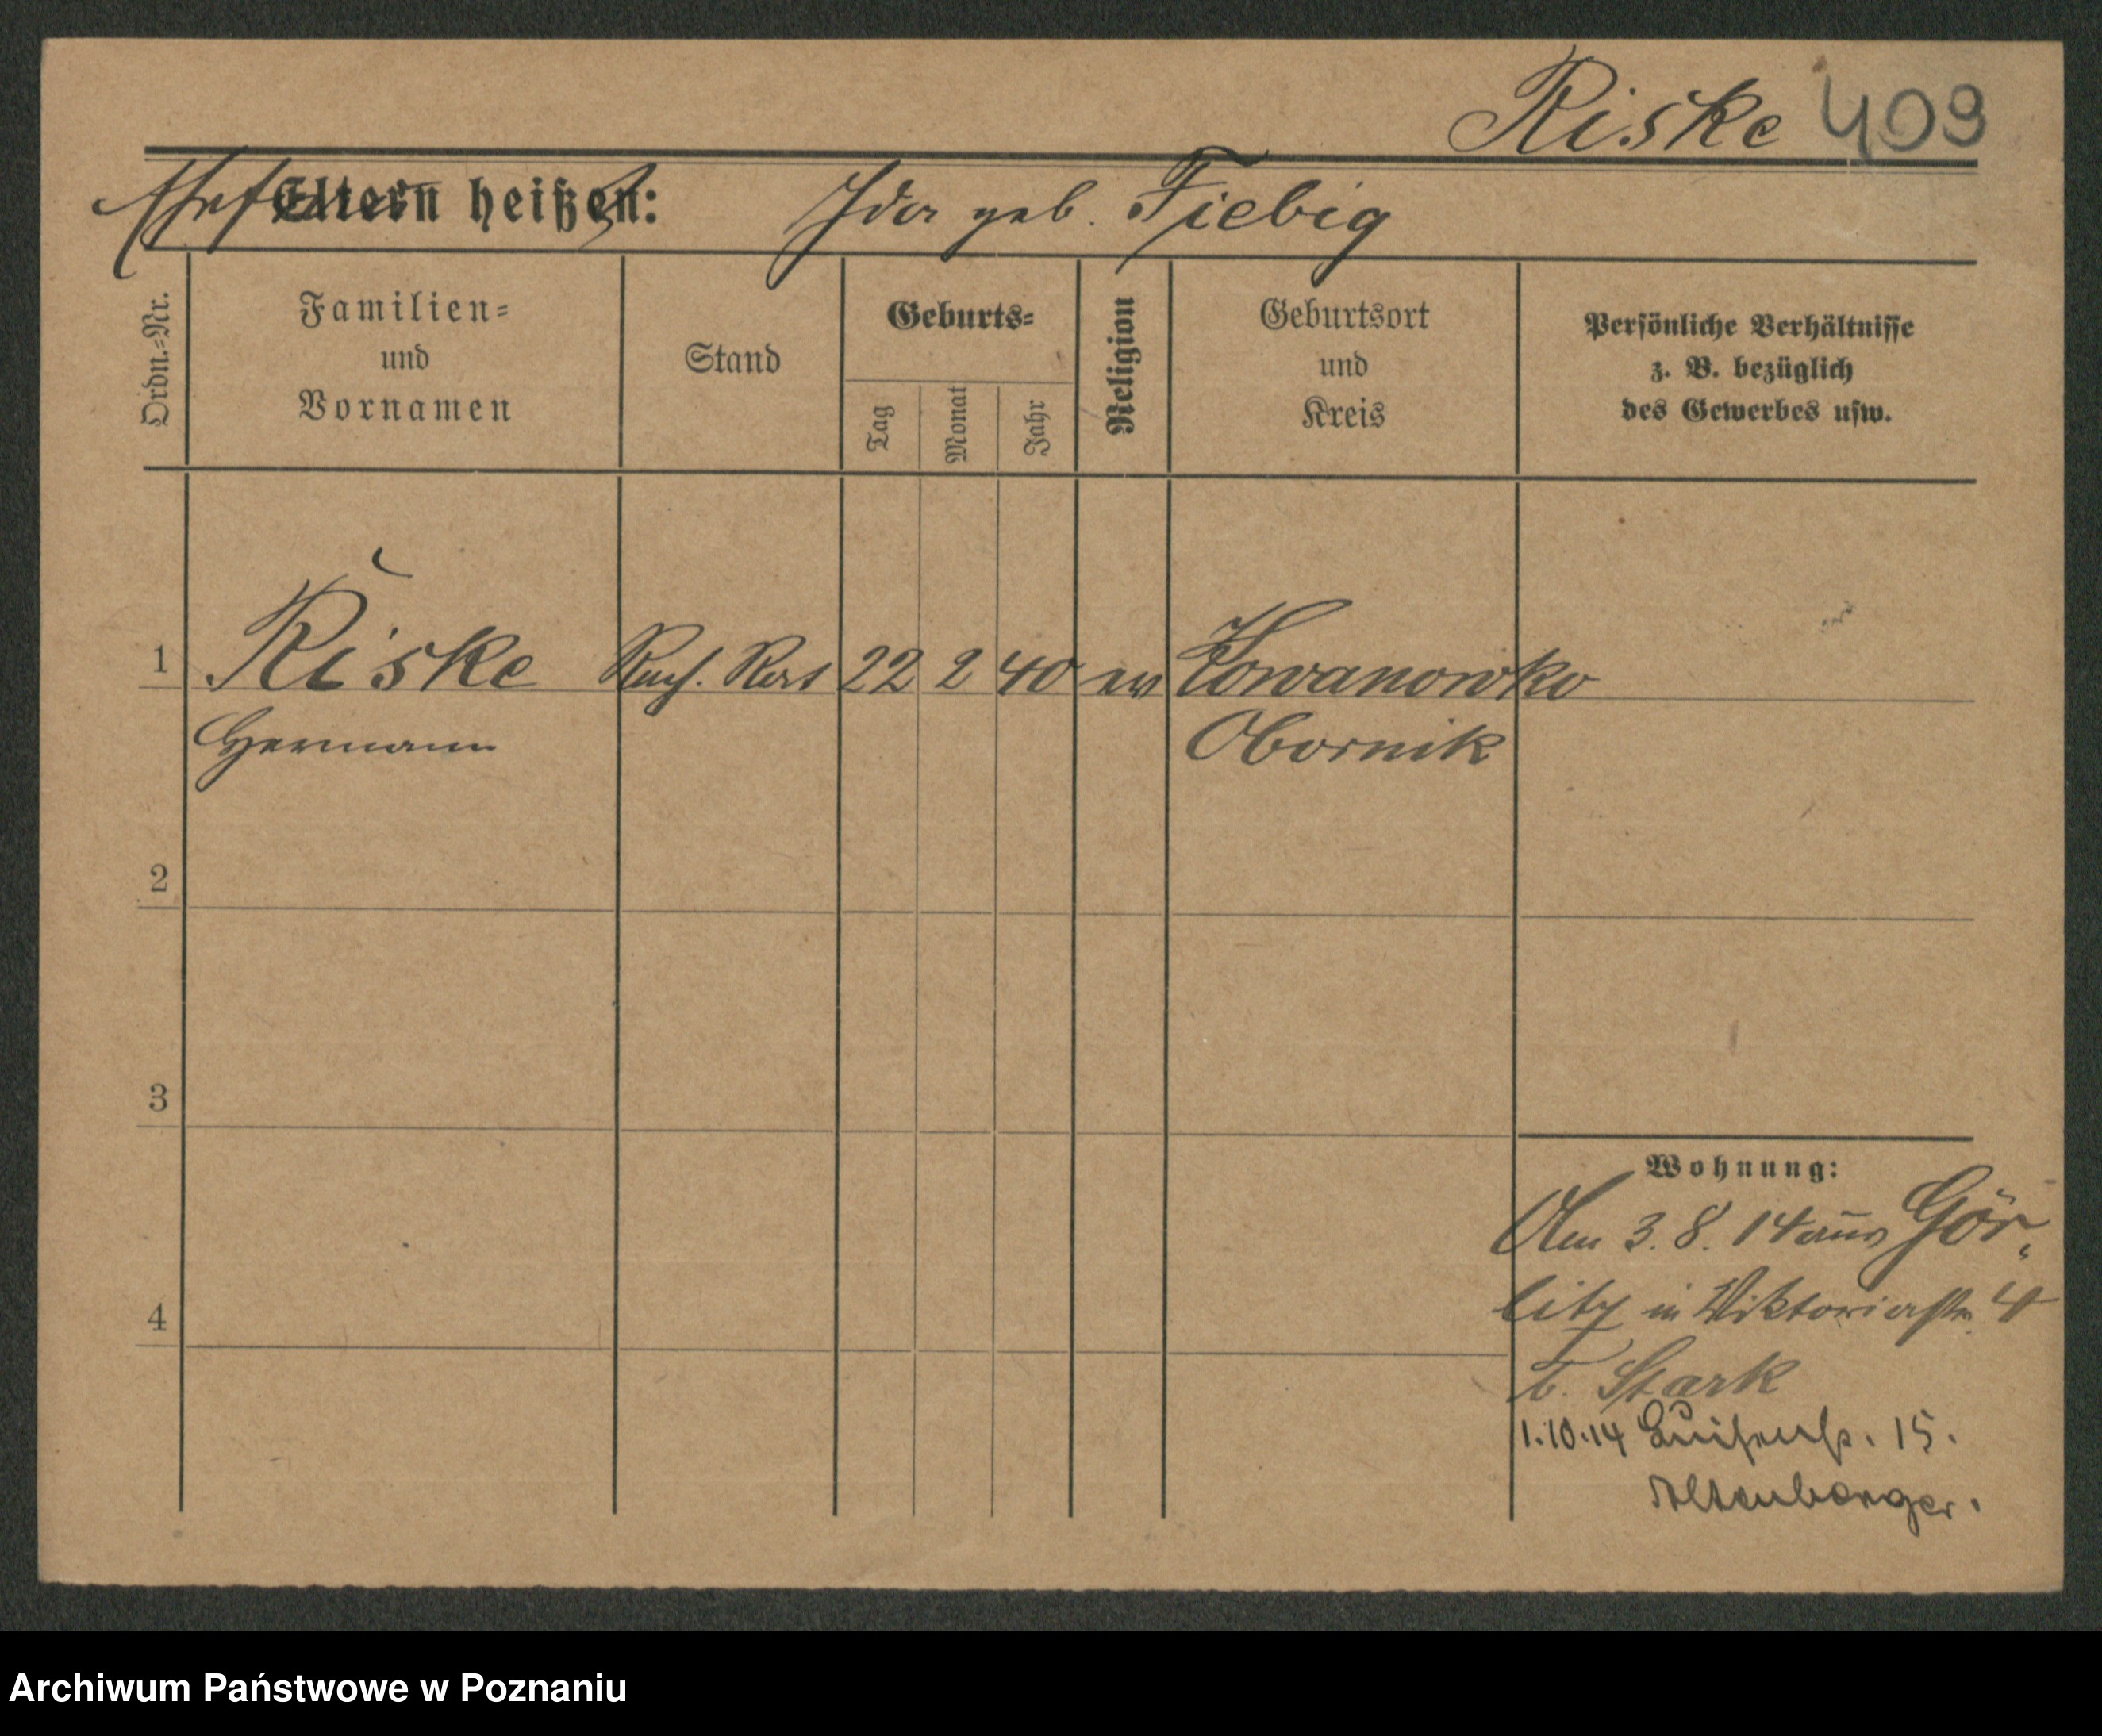 Riske 409
Ehefrau Eltern heißen: Ida geb. Fiebig
Ordn.-Nr.
Familien-
und
Vornamen
Stand
Geburts-
Tag
Monat
Jahr
Religion
Geburtsort
und
Kreis
Persönliche Verhältnisse
z. B. bezüglich
des Gewerbes usw.
1 Riske 22 2 40 ev Kowanowko
Hermann Obornik
2
3
4
Wohnung:
Am 3. 8. 14 aus Gör-
litz in Viktoriastr. 4
b. Stark
1.10.14 Luisenstr. 15.
Altenberger.
Archiwum Państwowe w Poznaniu